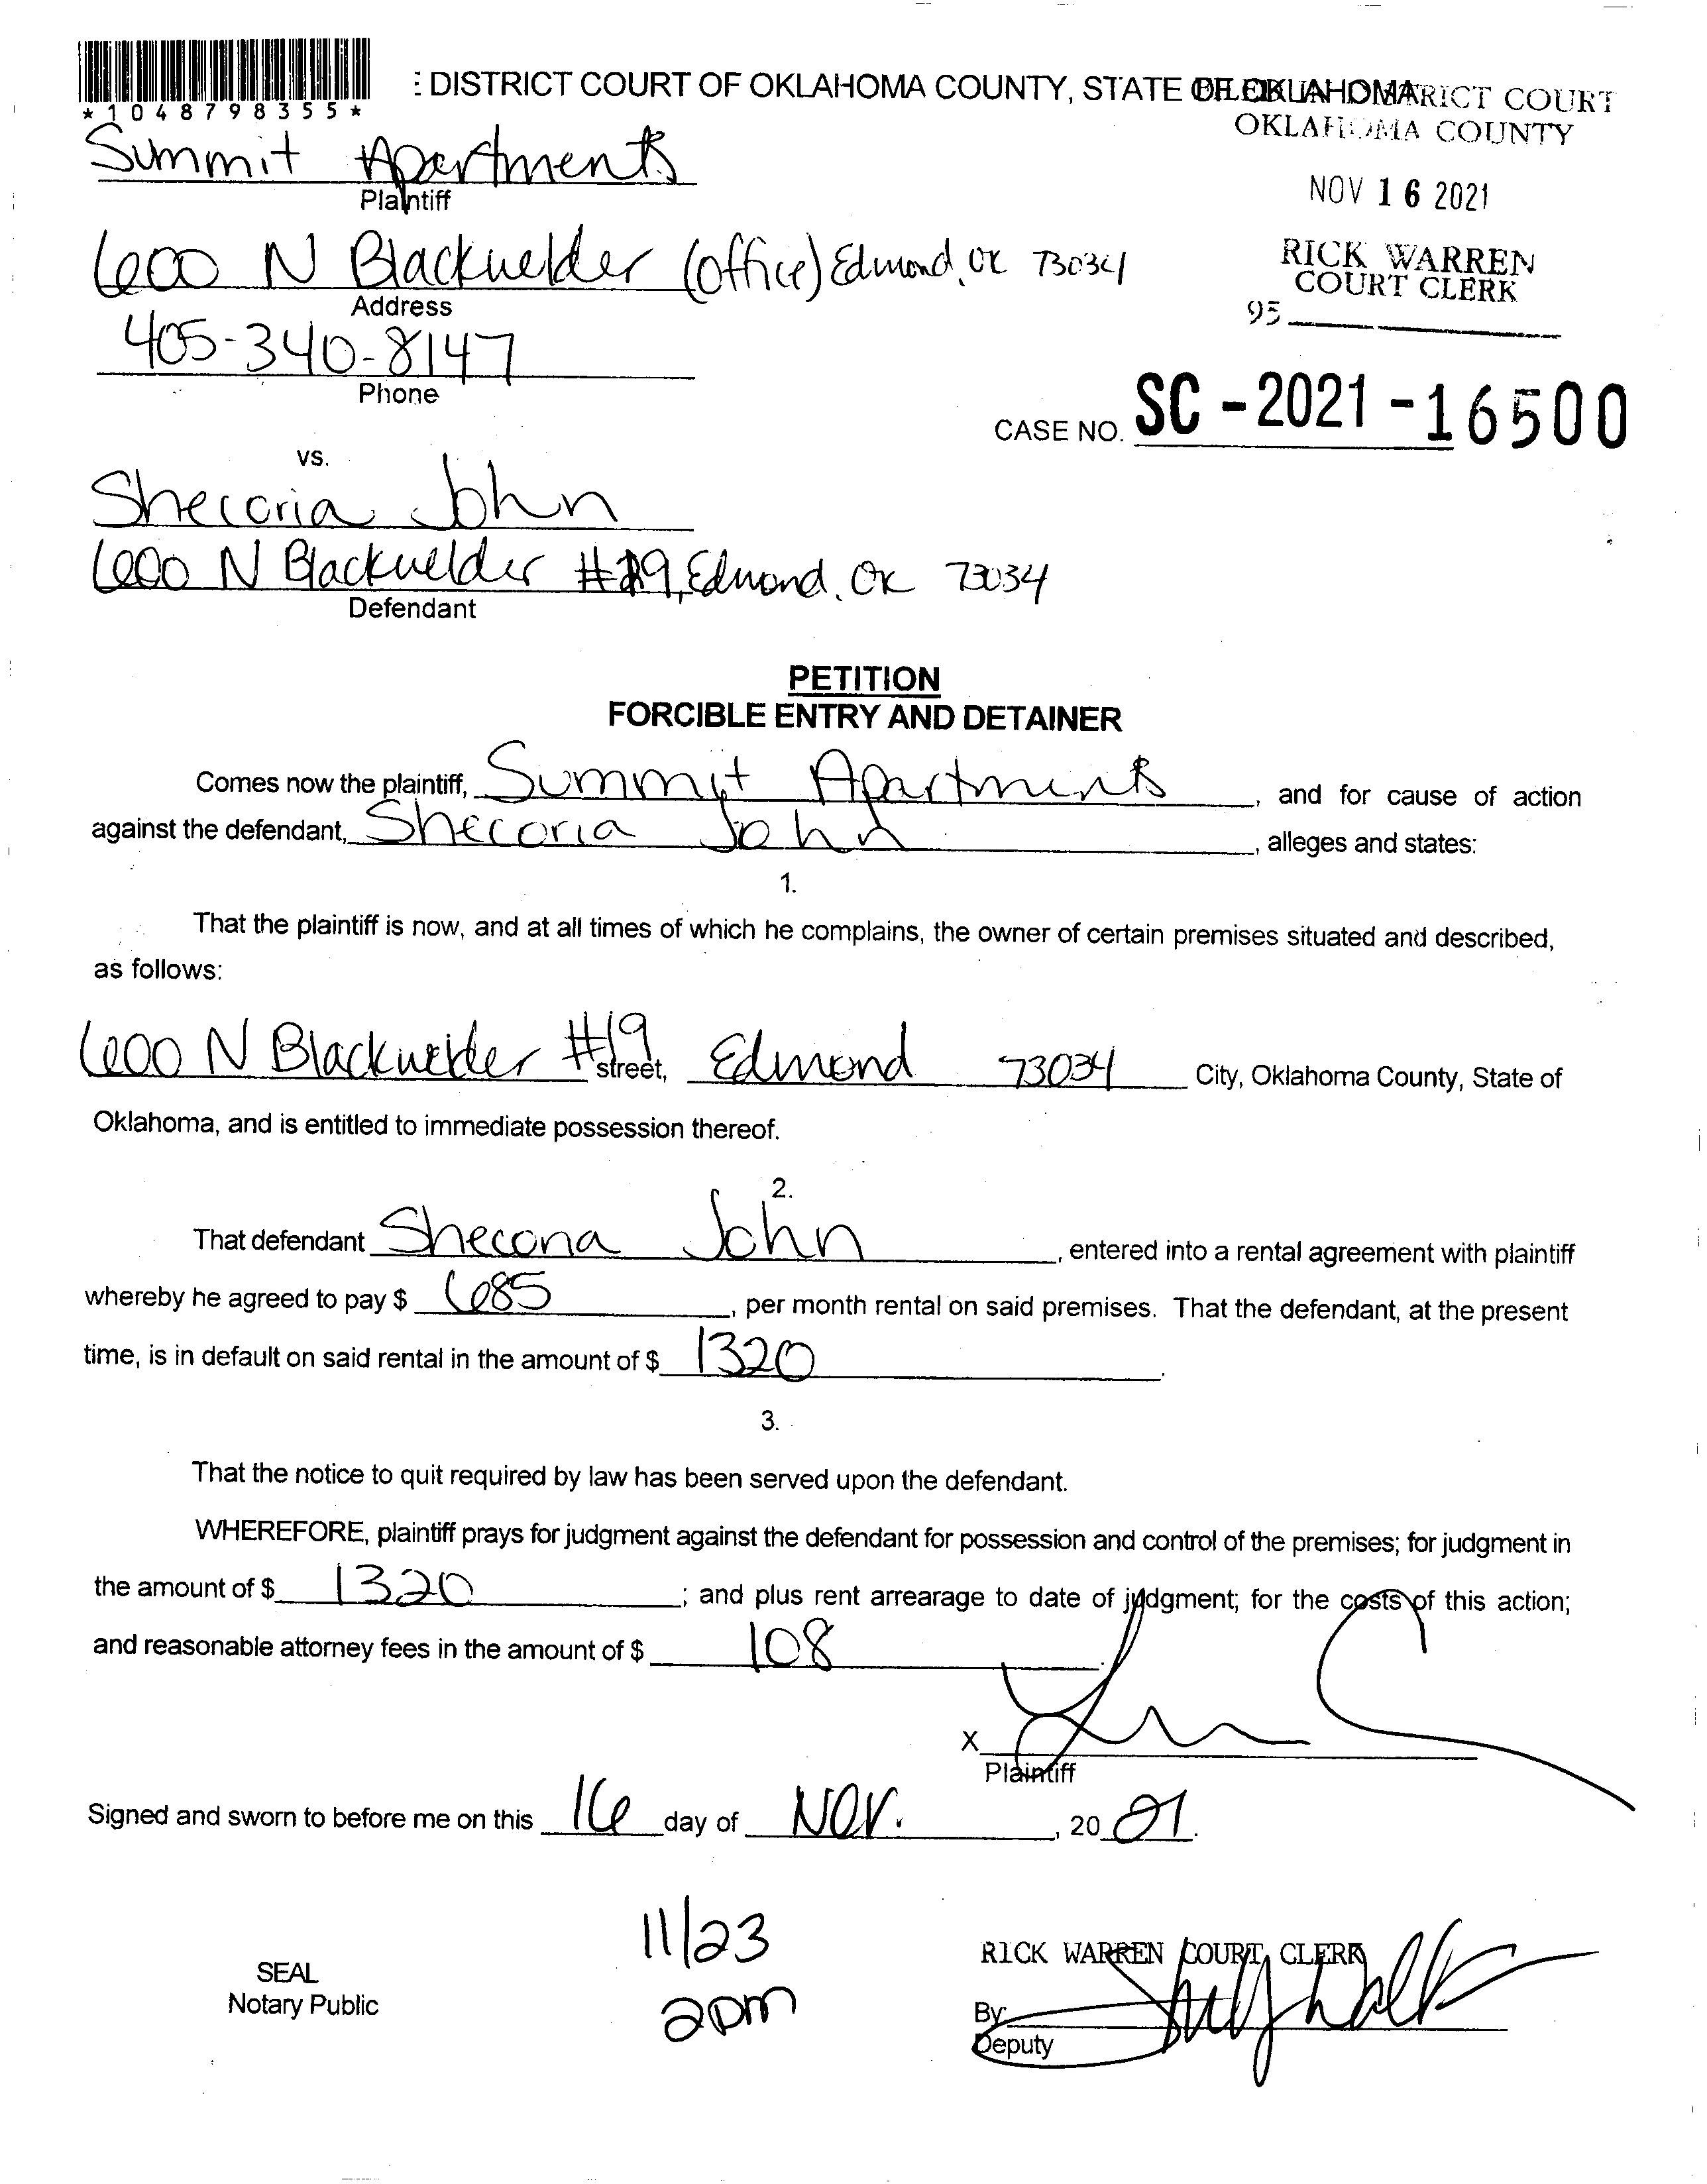 *1048798355*
: DISTRICT COURT OF OKLAHOMA COUNTY, STATE OF OKLAHOMA
FILED IN DISTRICT COURT
OKLAHOMA COUNTY
Summit Apartments
Plaintiff
NOV 16 2021
600 N Blackwelder (office) Edmond, OK 73034
Address
RICK WARREN
COURT CLERK
95
405-340-8147
Phone
CASE NO. SC-2021-16500
vs.
Shecoria John
600 N Blackwelder #19, Edmond, OK 73034
Defendant
PETITION
FORCIBLE ENTRY AND DETAINER
Comes now the plaintiff, Summit Apartments, and for cause of action
against the defendant, Shecoria John, alleges and states:
1.
That the plaintiff is now, and at all times of which he complains, the owner of certain premises situated and described,
as follows:
600 N Blackwelder #19 street, Edmond 73034 City, Oklahoma County, State of
Oklahoma, and is entitled to immediate possession thereof.
2.
That defendant Shecoria John, entered into a rental agreement with plaintiff
whereby he agreed to pay $ 685, per month rental on said premises. That the defendant, at the present
time, is in default on said rental in the amount of $ 1320.
3.
That the notice to quit required by law has been served upon the defendant.
WHEREFORE, plaintiff prays for judgment against the defendant for possession and control of the premises; for judgment in
the amount of $ 1320; and plus rent arrearage to date of judgment; for the costs of this action;
and reasonable attorney fees in the amount of $ 108.
X
Plaintiff
Signed and sworn to before me on this 16 day of Nov., 2021.
11/23
2pm
SEAL
Notary Public
RICK WARREN COURT CLERK
By:
Deputy